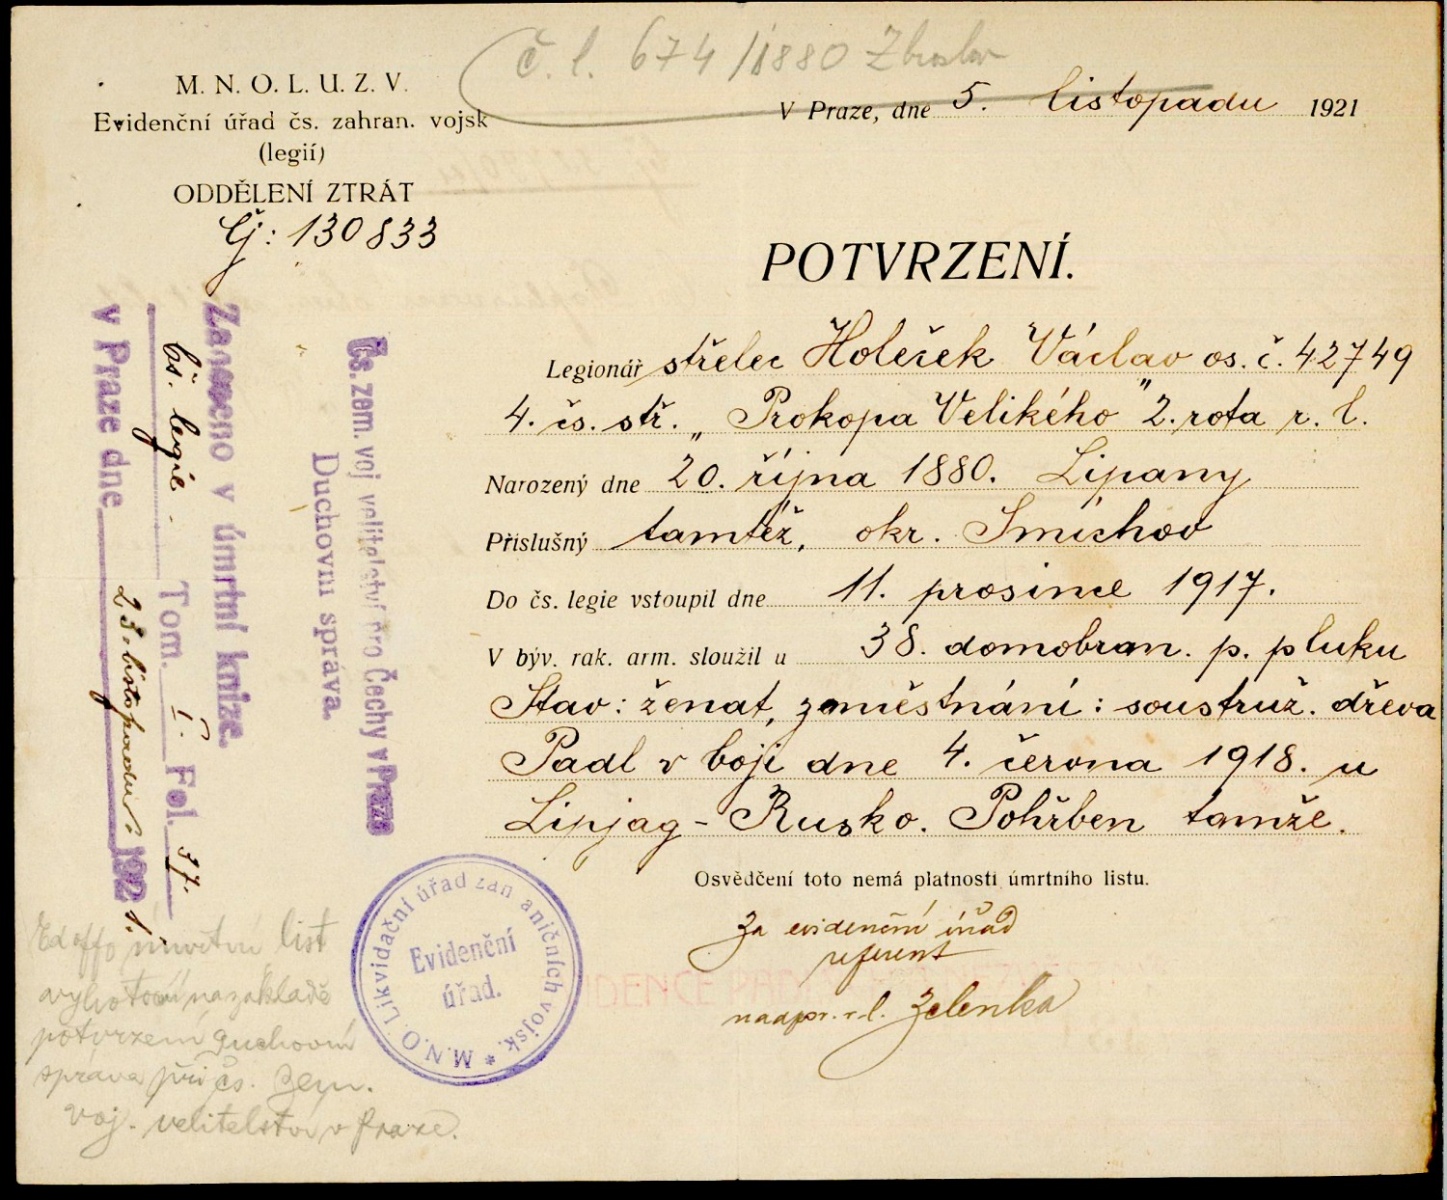 č. l. 674/1880 Zbraslav
M. N. O. L. U. Z. V.
Evidenční úřad čs. zahran. vojsk
(legií)
ODDĚLENÍ ZTRÁT
Čj: 130833
V Praze, dne 5. listopadu 1921
POTVRZENÍ.
Legionář střelec Holeček Václav os. č. 42749
4. čs. stř. „Prokopa Velikého" 2. rota r. l.
Narozený dne 20. října 1880. Lipany
Příslušný tamtéž, okr. Smíchov
Do čs. legie vstoupil dne 11. prosince 1917.
V býv. rak. arm. sloužil u 38. domobran. p. pluku
Stav: ženat, zaměstnání: soustruž. dřeva
Padl v boji dne 4. června 1918. u
Lipjag - Rusko. Pohřben tamže.
Osvědčení toto nemá platnosti úmrtního listu.
Za evidenční úřad
referent
nadpor. r. l. Zelenka
Čs. zem. voj. velitelství pro Čechy v Praze
Duchovní správa.
Zaneseno v úmrtní knize.
čs. legie. Tom. I. Fol. 37.
v Praze dne 23. listopadu 1921.
M.N.O. Likvidační úřad zahraničních vojsk. *
Evidenční
úřad.
úmrtní list
vyhotoví na základě
potvrzení duchovní
správa při čs. zem.
voj. velitelství v Praze.